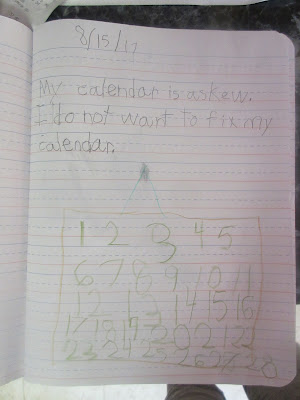 8/15/17
My calendar is askew.
I do not want to fix my
calendar.
1 2 3 4 5
6 7 8 9 10 11
12 13 14 15 16
17 18 19 20 21 22
23 24 25 26 28